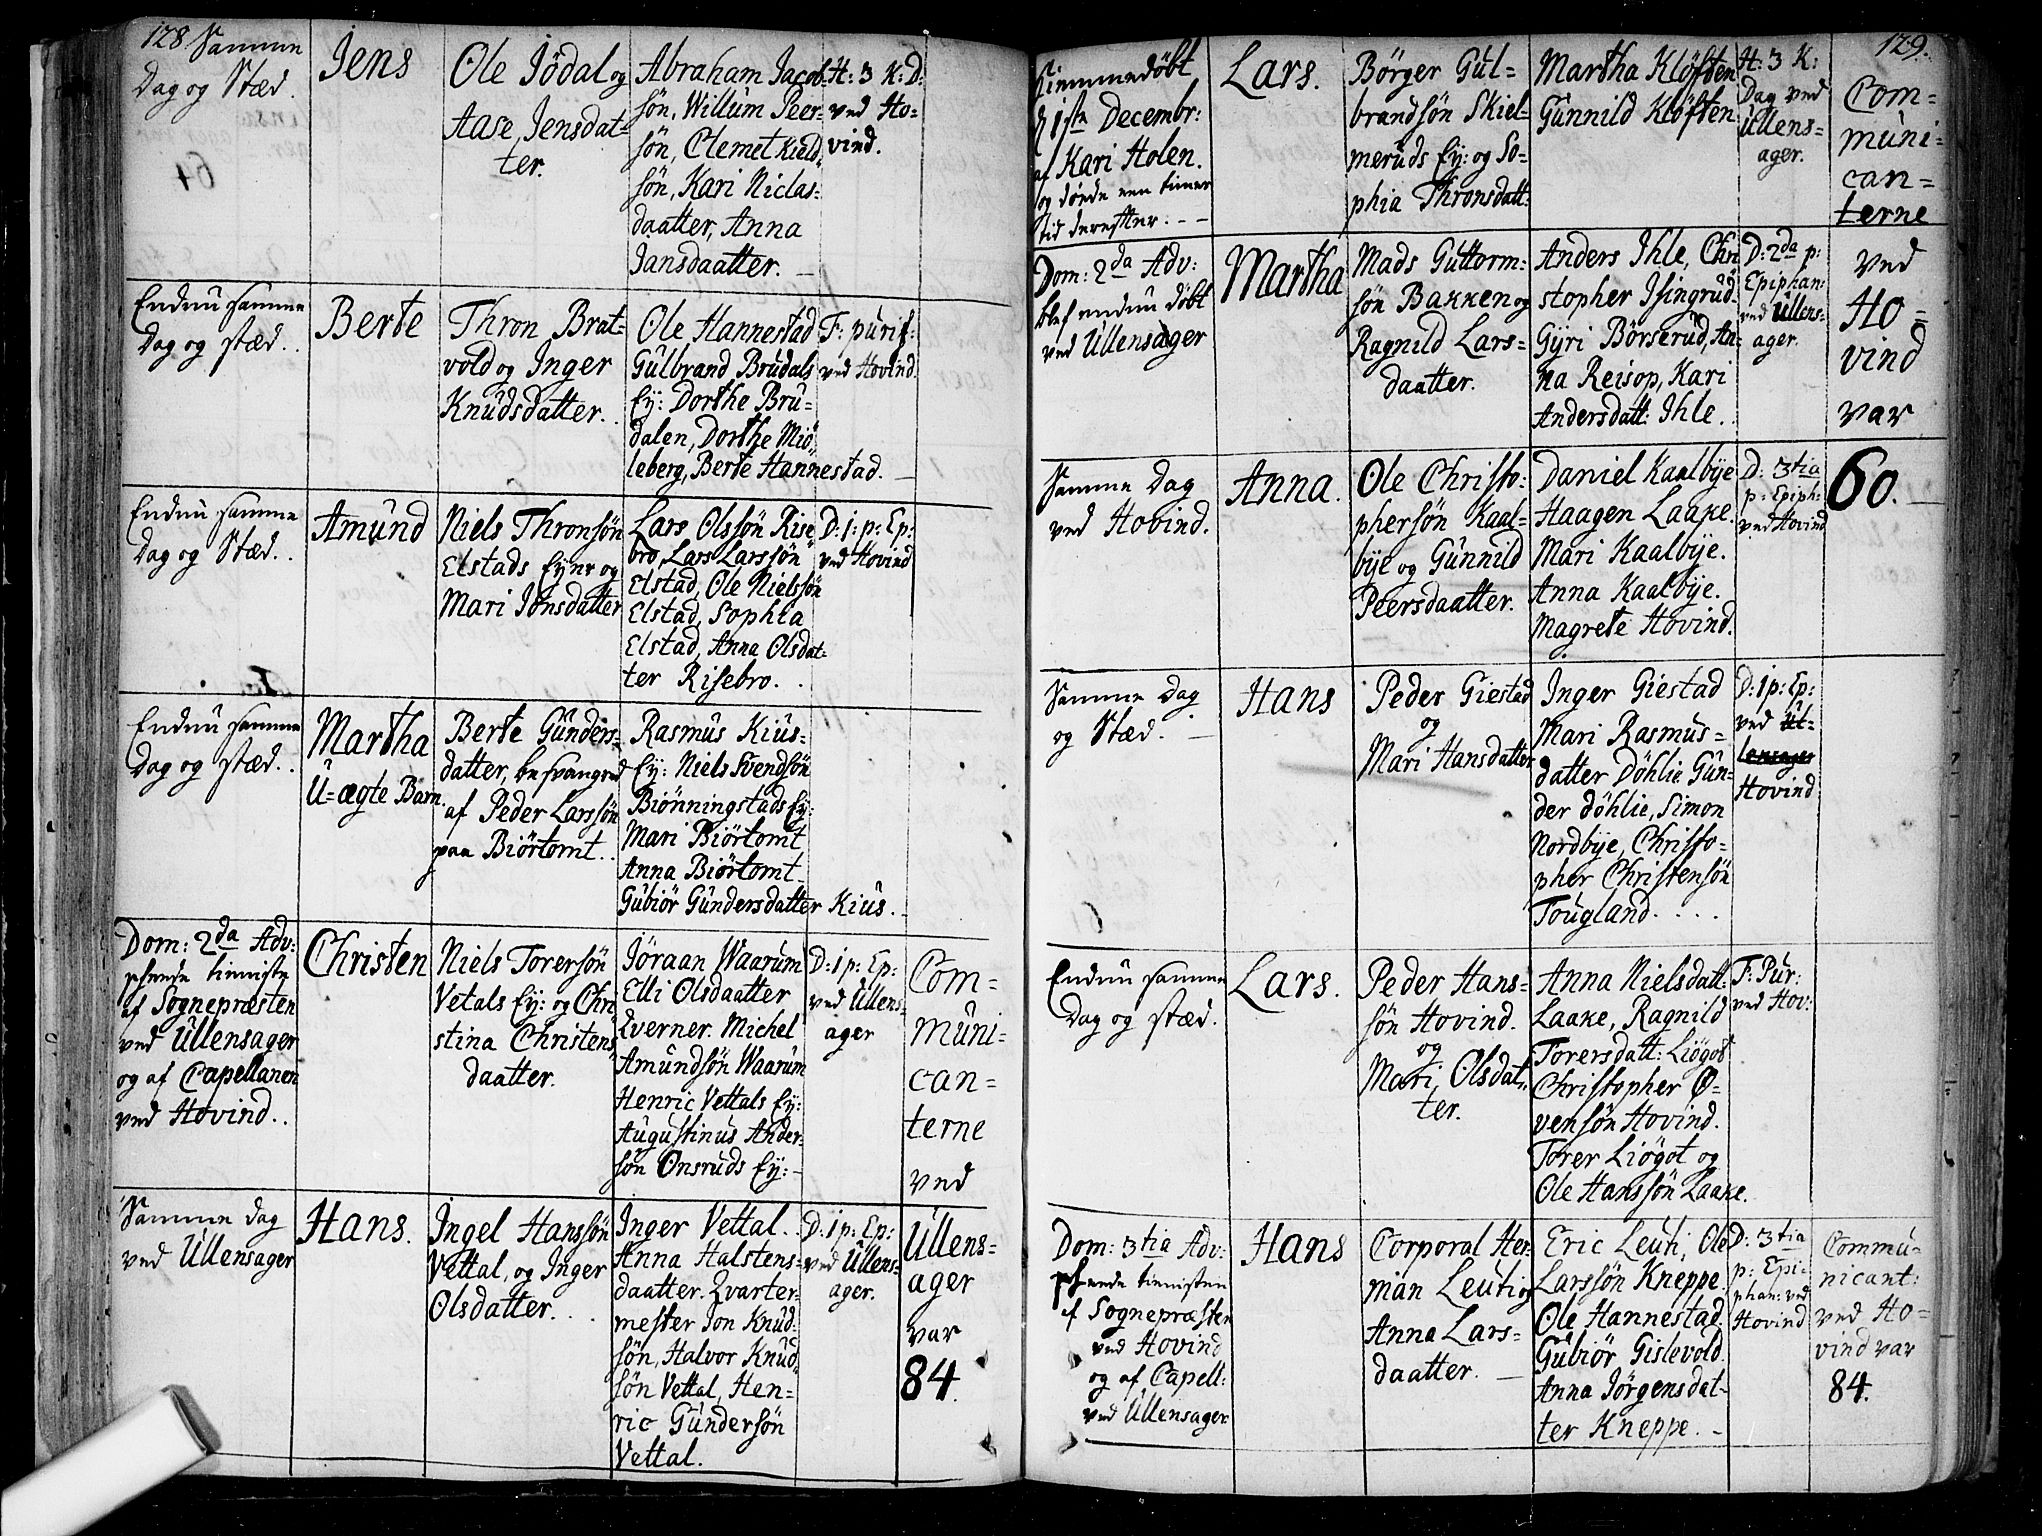 128 Samme
Dag og Stæd.
Jens
Ole Jödal og
Aase, Jensdat-
ter.
Abraham Jacob-
sön, Willum Peer-
sön, Clemet Kield-
sön, Kari Niclas-
daatter, Anna
Jansdaatter. —
H: 3 K: D:
ved Ho-
vind.
Endnu samme
Dag og stæd.
Berte
Thron Brat-
vold og Inger
Knudsdatter.
Ole Hannestad
Gulbrand Brudals
Ey: Dorthe Bru-
dalen, Dorthe Miö-
leberg, Berte Hannestad. —
F: purif:
ved Hovind.
Endnu samme
Dag og Stæd.
Amund
Niels Thronsön
Elstads Eynr og
Mari Jonsdatter
Lars Olssön Rise-
bro, Lars Larssön
Elstad, Ole Nielssön
Elstad, Sophia
Elstad, Anna Olsdat-
ter Risebro.
D: 1: p: Ep:
ved Hovind
Endnu samme
Dag og stæd.
Martha
U-ægte Barn.
Berte Gunders-
datter, besvangred
af Peder Larssön
paa Biörtomt.
Rasmus Kius-
Ey: Niels Svendsön
Biönningstads Ey:
Mari Biörtomt
Anna Biörtomt
Gubiör Gundersdatter Kius.
Dom: 2da Adv:
tienniste
af Sognepræsten
ved Ullensager
og af Capellanen
ved Hovind.
Christen
Niels Torersön
Vetals Ey: og Chri-
stina Christens-
daatter.
Jöraan Waarum
Elli Olsdaatter
Qverner. Michel
Amundsön Waarum
Henric Vettals Ey:
Augustinus Ander-
sön Onsruds Ey: —
D: 1 p: Ep:
ved Ullens-
ager
Com-
muni-
can-
terne
ved
Ullens-
ager
var
84.
Samme Dag
ved Ullensager
Hans.
Ingel Hanssön
Vettal, og Inger
Olsdatter.
Inger Vettal.
Anna Halstens-
daatter. Qvarter-
mester Jon Knud-
sön, Halvor Knud-
sön Vettal, Hen-
ric Gundersön
Vettal.
D: 1 p: Ep:
ved Ullens-
ager.
129.
Hiemmedöbt
d 1ste Decembr:
af Kari Holen.
og döede een times
tid derefter. — —
Lars.
Börger Gul-
brandsön Skiel-
meruds Ey: og So-
phia Thronsdatt:
Martha Klöften
Gunnild Klöften
H: 3 K:
Dag ved
Ullens-
ager.
Com-
muni-
can-
terne
ved
Ho-
vind
var
60.
Dom: 2da Adv:
blef endnu döbt
ved Ullensager
Martha
Mads Guttorm-
sön Bakken og
Ragnild Lars-
daatter.
Anders Ihle, Chri-
stopher Isingrud
Gyri Börserud, An-
na Reisop, Kari
Andersdatt: Ihle.
D: 2da p:
Epiphan:
ved Ullens-
ager.
Samme Dag
ved Hovind.
Anna.
Ole Christo-
phersön Kaal-
bye og Gunnild
Peersdaatter.
Daniel Kaalbye
Haagen Laake.
Mari Kaalbye.
Anna Kaalbye.
Magrete Hovind.
D: 3tia
p: Epiph:
ved Hovind
Samme Dag
og Stæd. —
Hans
Peder Giestad
og
Mari Hansdatter
Inger Giestad
Mari Rasmus-
datter Döhlie Gun-
der döhlie, Simon
Nordbye, Christo-
pher Christensön
Tougland. . . .
D: 1 p: Ep:
ved Ul-
lensager
Hovind
Endnu samme
Dag og stæd.
Lars.
Peder Hans-
sön Hovind.
og
Mari, Olsdat-
ter.
Anna Nielsdatt:
Laake, Ragnild
Torersdatt: Liögot
Christopher O-
vensön Hovind.
Torer Liögot og
Ole Hanssön Laake.
F: Pur:
ved Hov:
Dom: 3tia Adv:
tiennisten
af Sognepræsten
ved Hovind
og af Capell:
ved Ullensager
Hans
Corporal Her-
man Leuti og
Anna Lars-
daatter. —
Eric Leuti, Ole
Larssön Kneppe.
Ole Hannestad.
Gubiör Gislevold.
Anna Jörgensdat-
ter Kneppe. —
D: 3tia
p: Epi-
phan: ved
Hovind
Commu-
nicant:
ved Ho-
vind var
84.